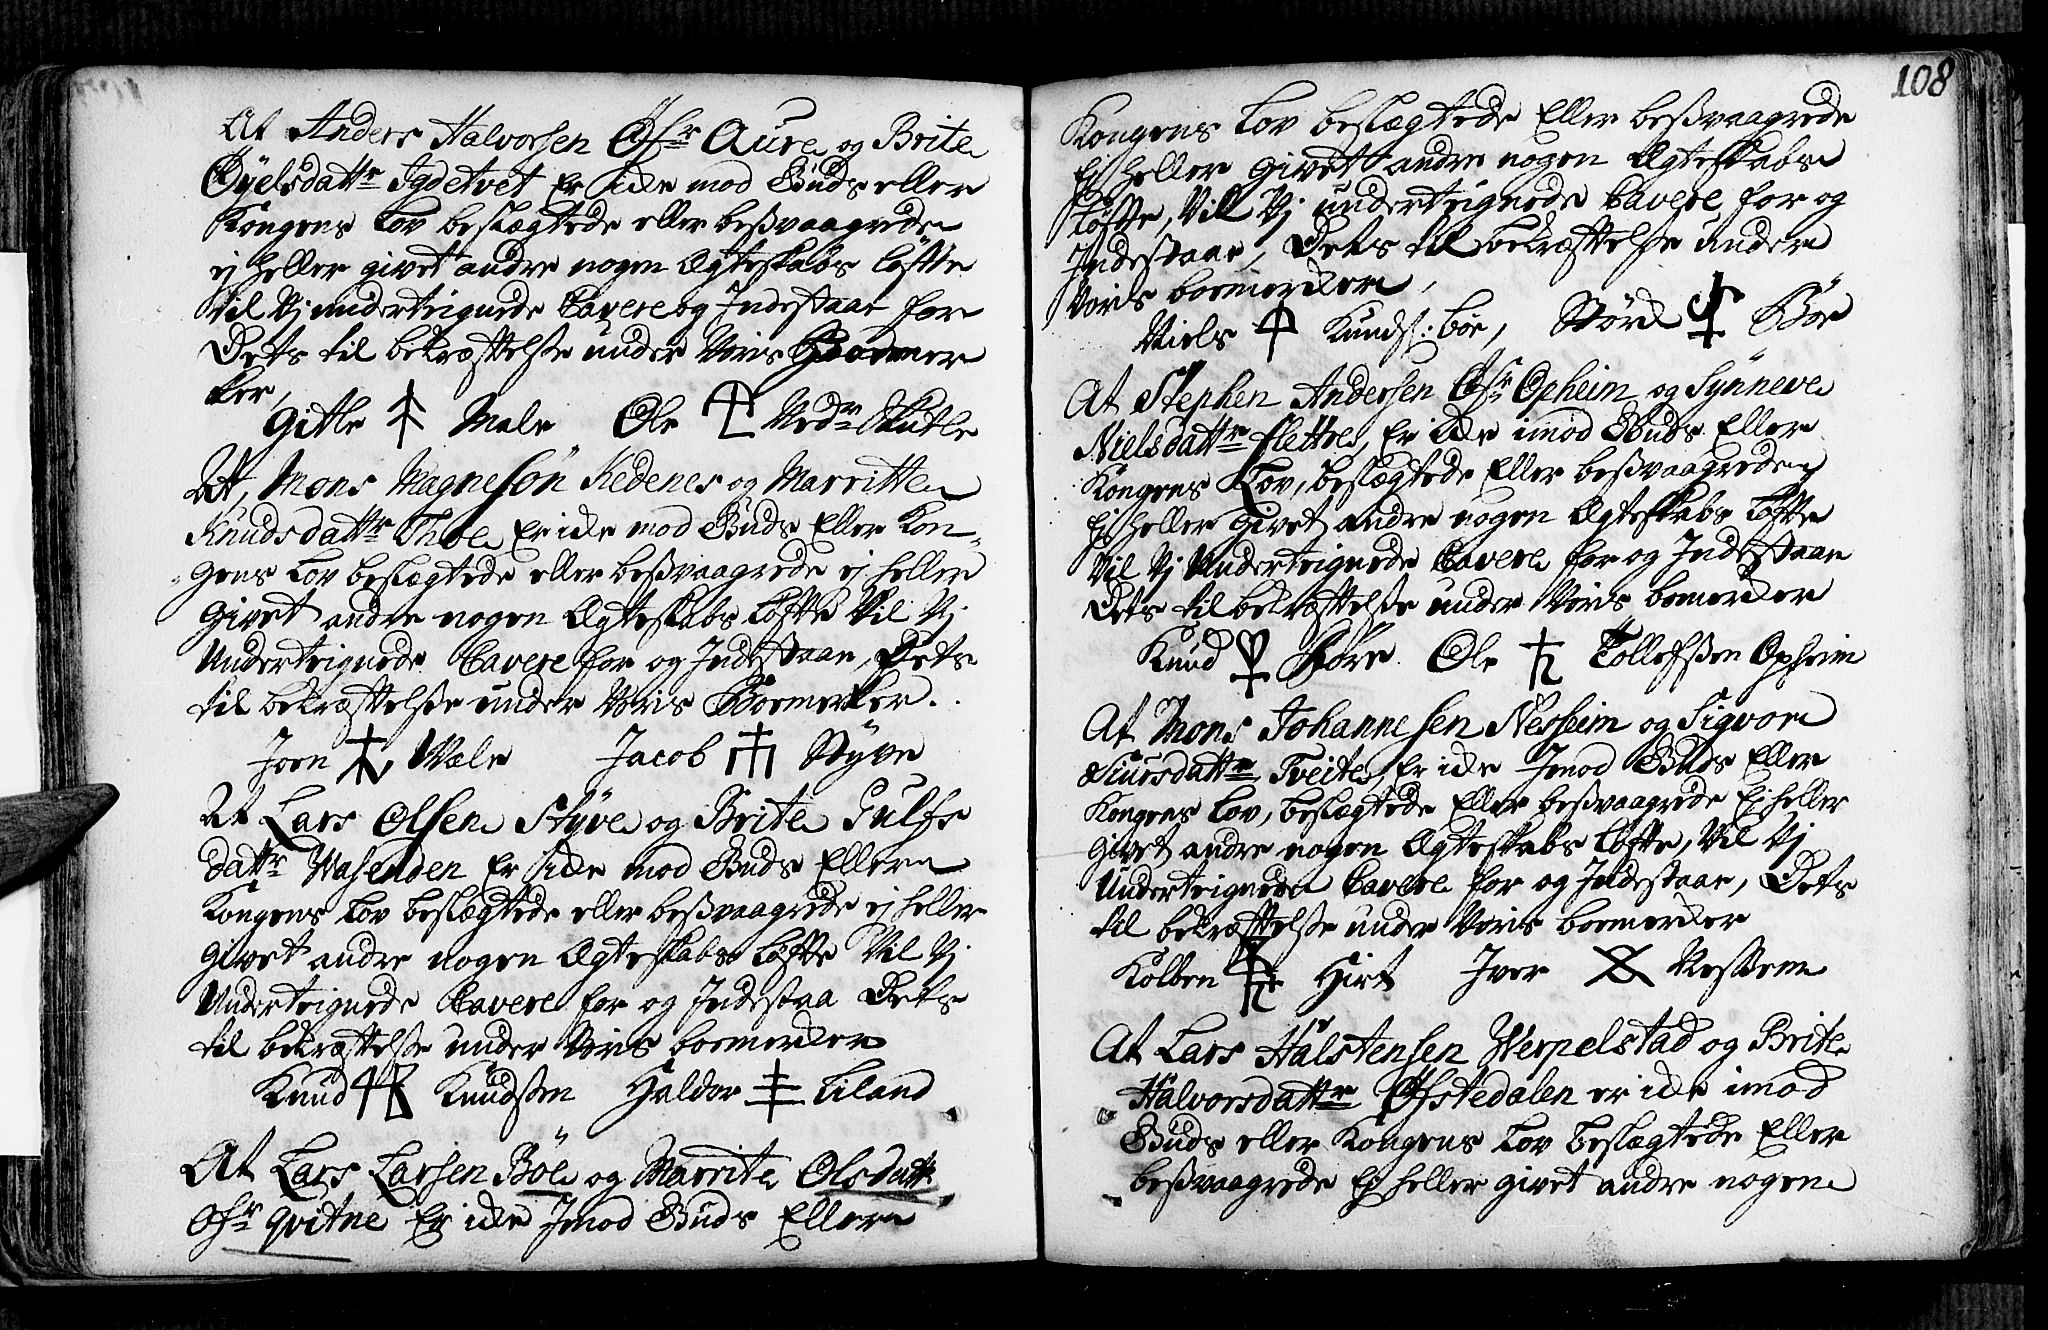 At Anders Halvorsen Ofr Aure og Brite
Öÿelsdattr Igdetvet Er icke mod Guds eller
Kongens Lov beslægtede eller beßvaagrede
ej heller givet andre nogen Ægteskabs løfte
til Vj undertegnede Cavere og Indestaar for
Dets til bekræftelse under Voris Boemer
ker,
Gitle Male Ole Nedr Skutle
At, Mons Magnesön Kedenes og Marritte
Knudsdattr Thoe Er icke mod Guds Eller Kon-
gens Lov beslægtede eller beßvaagrede ej heller
Givet andre nogen Ægteskabs Løfte Vil Vj
Undertegnede Cavere for og Indestaar, Dets
til bekræftelse under Voris Boemerker.
Joen Wæle Jacob Styve
At Lars Olsen Styve og Brite Gulfs
dattr Wasenden Er icke mod Guds Eller
Kongens Lov beslægtede eller beßvaagrede ej heller
Givet andre nogen Ægteskabs Løfte Vil Vj
Undertegnede Cavere for og Indestaa Dets
til bekræftelse under Voris boemercker
Knud Knudsøn Haldor Liland
At Lars Larsen Böe og Marrite Olsdattr
Ofr qvitne Er icke Imod Guds Eller
108
Kongens Lov beslægtede Eller beßvaagrede
Ej heller Givet andre nogen Ægteskabs
Løfte, Vill Vj undertegnede Cavere for og
Indestaar, Dets til bekræftelse under
Voris boemercker,
Niels Knuds: böe, Störck Böe
At Stephen Andersen Ofr Opheim og Synneve
Nielsdattr Flettre, Er icke imod Guds Eller
Kongens Lov, beslægtede Eller beßvaagrede
Ej heller Givet andre nogen Ægteskabs Løfte
Vil Vj Undertegnede Cavere for og Indestaar
Dets til bekræftelse under Voris boemercker
Knud Ole Tollefsøn Opheim
At Mons Johannesen Nesheim og Sigvor
Siursdattr Tveite, Er icke Imod Guds Eller
Kongens Lov, beslægtede Eller beßvaagrede Ej heller
Givet andre nogen Ægteskabs Løfte, Vil Vj
Undertegnede Cavere for og Indestaar, Dets
til bekræftelse under Voris boemercker
Kolben Hirt Iver Nesßem
At Lars Halstensen Werpelstad og Brite
Halvorsdattr Ofstedalen er icke imod
Guds eller Kongens Lov beslægtede Eller
beßvaagrede Ej heller givet andre nogen